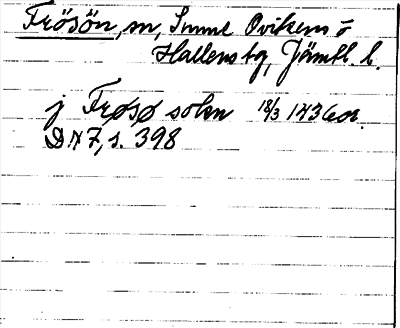 Frösön, sn, Sunne Ovikens o
Hallens tg, Jämtl. l.
j Frøsø sokn 18/3 1436 or.
DN 7, s. 398